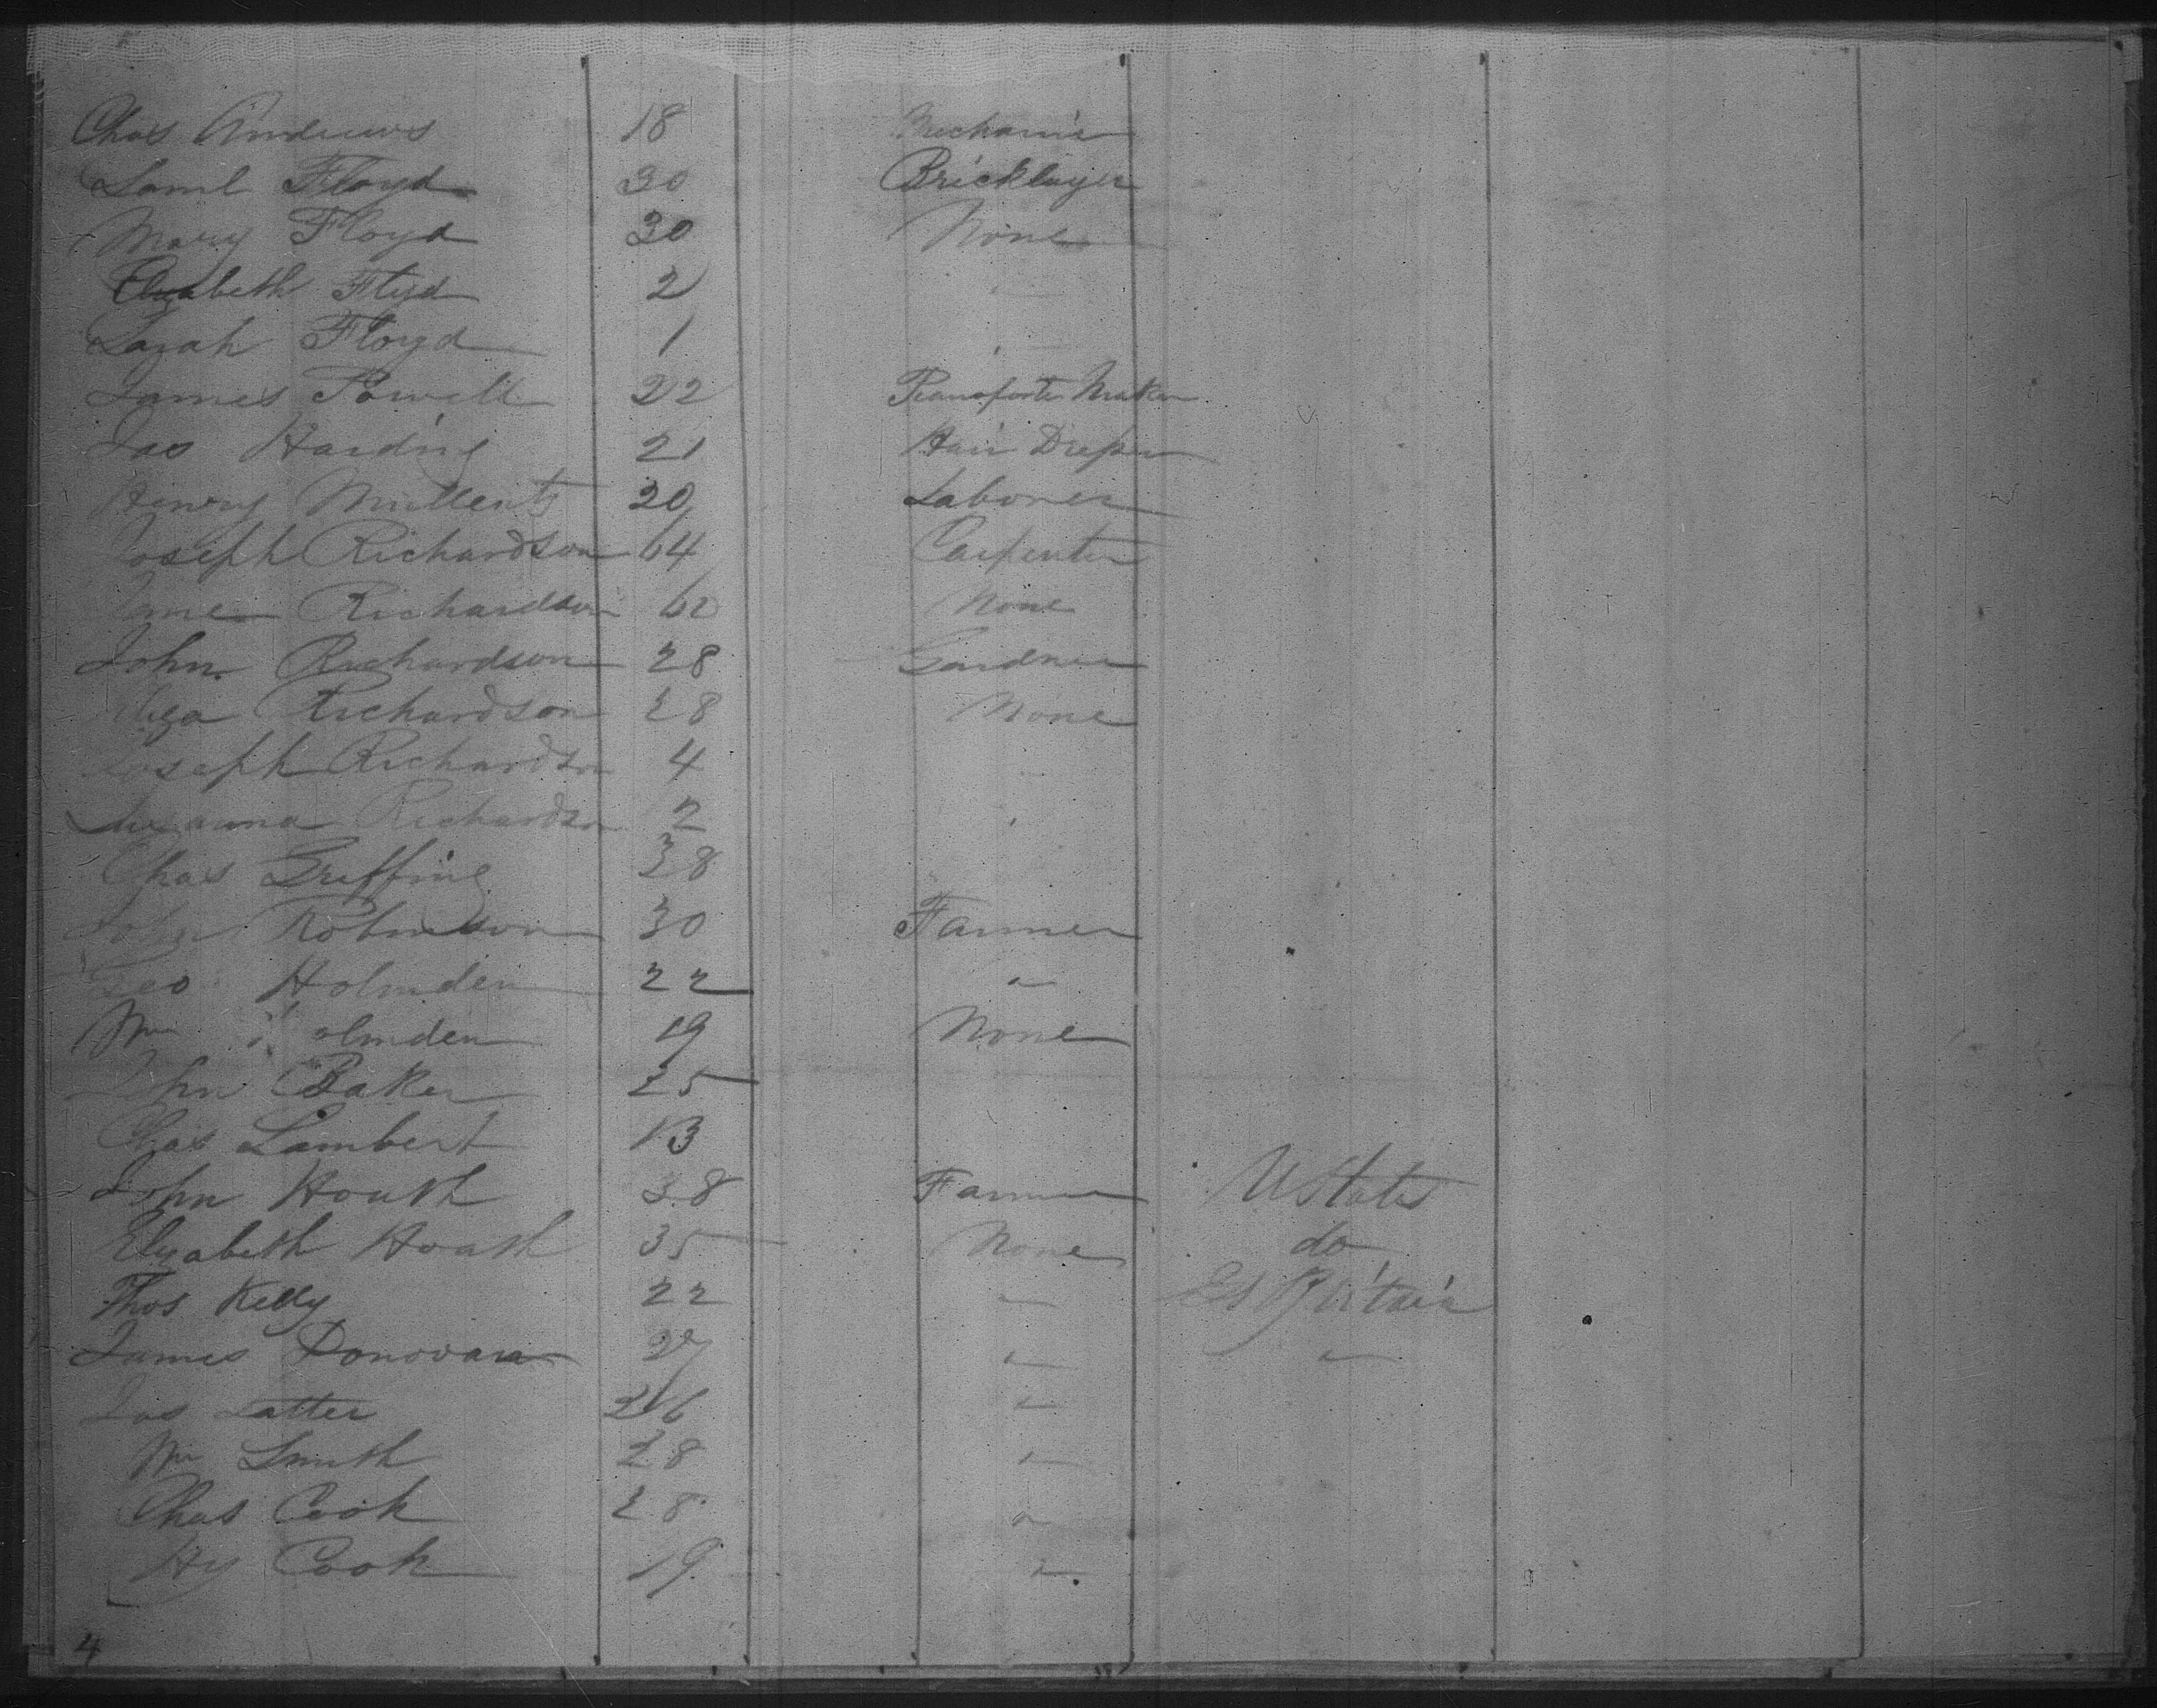 Chas Andrews 18 Mechanic
Saml Floyd 30 Bricklayer
Mary Floyd 30 None
Elizabeth Floyd 2 "
Sarah Floyd 1 "
James Powell 22 Pianoforte Maker
Jas Harding 21 Hair Dresser
Henry 20 Laborer
Joseph Richardson 64 Carpenter
Jane Richardson 62 None
John Richardson 28 Gardner
Eliza Richardson 28 None
Joseph Richardson 4 "
Susanna Richardson 2 "
Chas Griffing 38
John Robinson 30 Farmer
Geo Holmden 22 "
Wm Holmden 19 None
John Baker 25
Chas Lambert 13
John Houth 38 Farmer U States
Elizabeth Houth 35 None do
Thos Kelly 22 " Gt Britain
James Donovan 27 " "
Jas Latter 26 "
Wm Smith 28 "
Chas Cook 28 "
Hy Cook 19 "
4